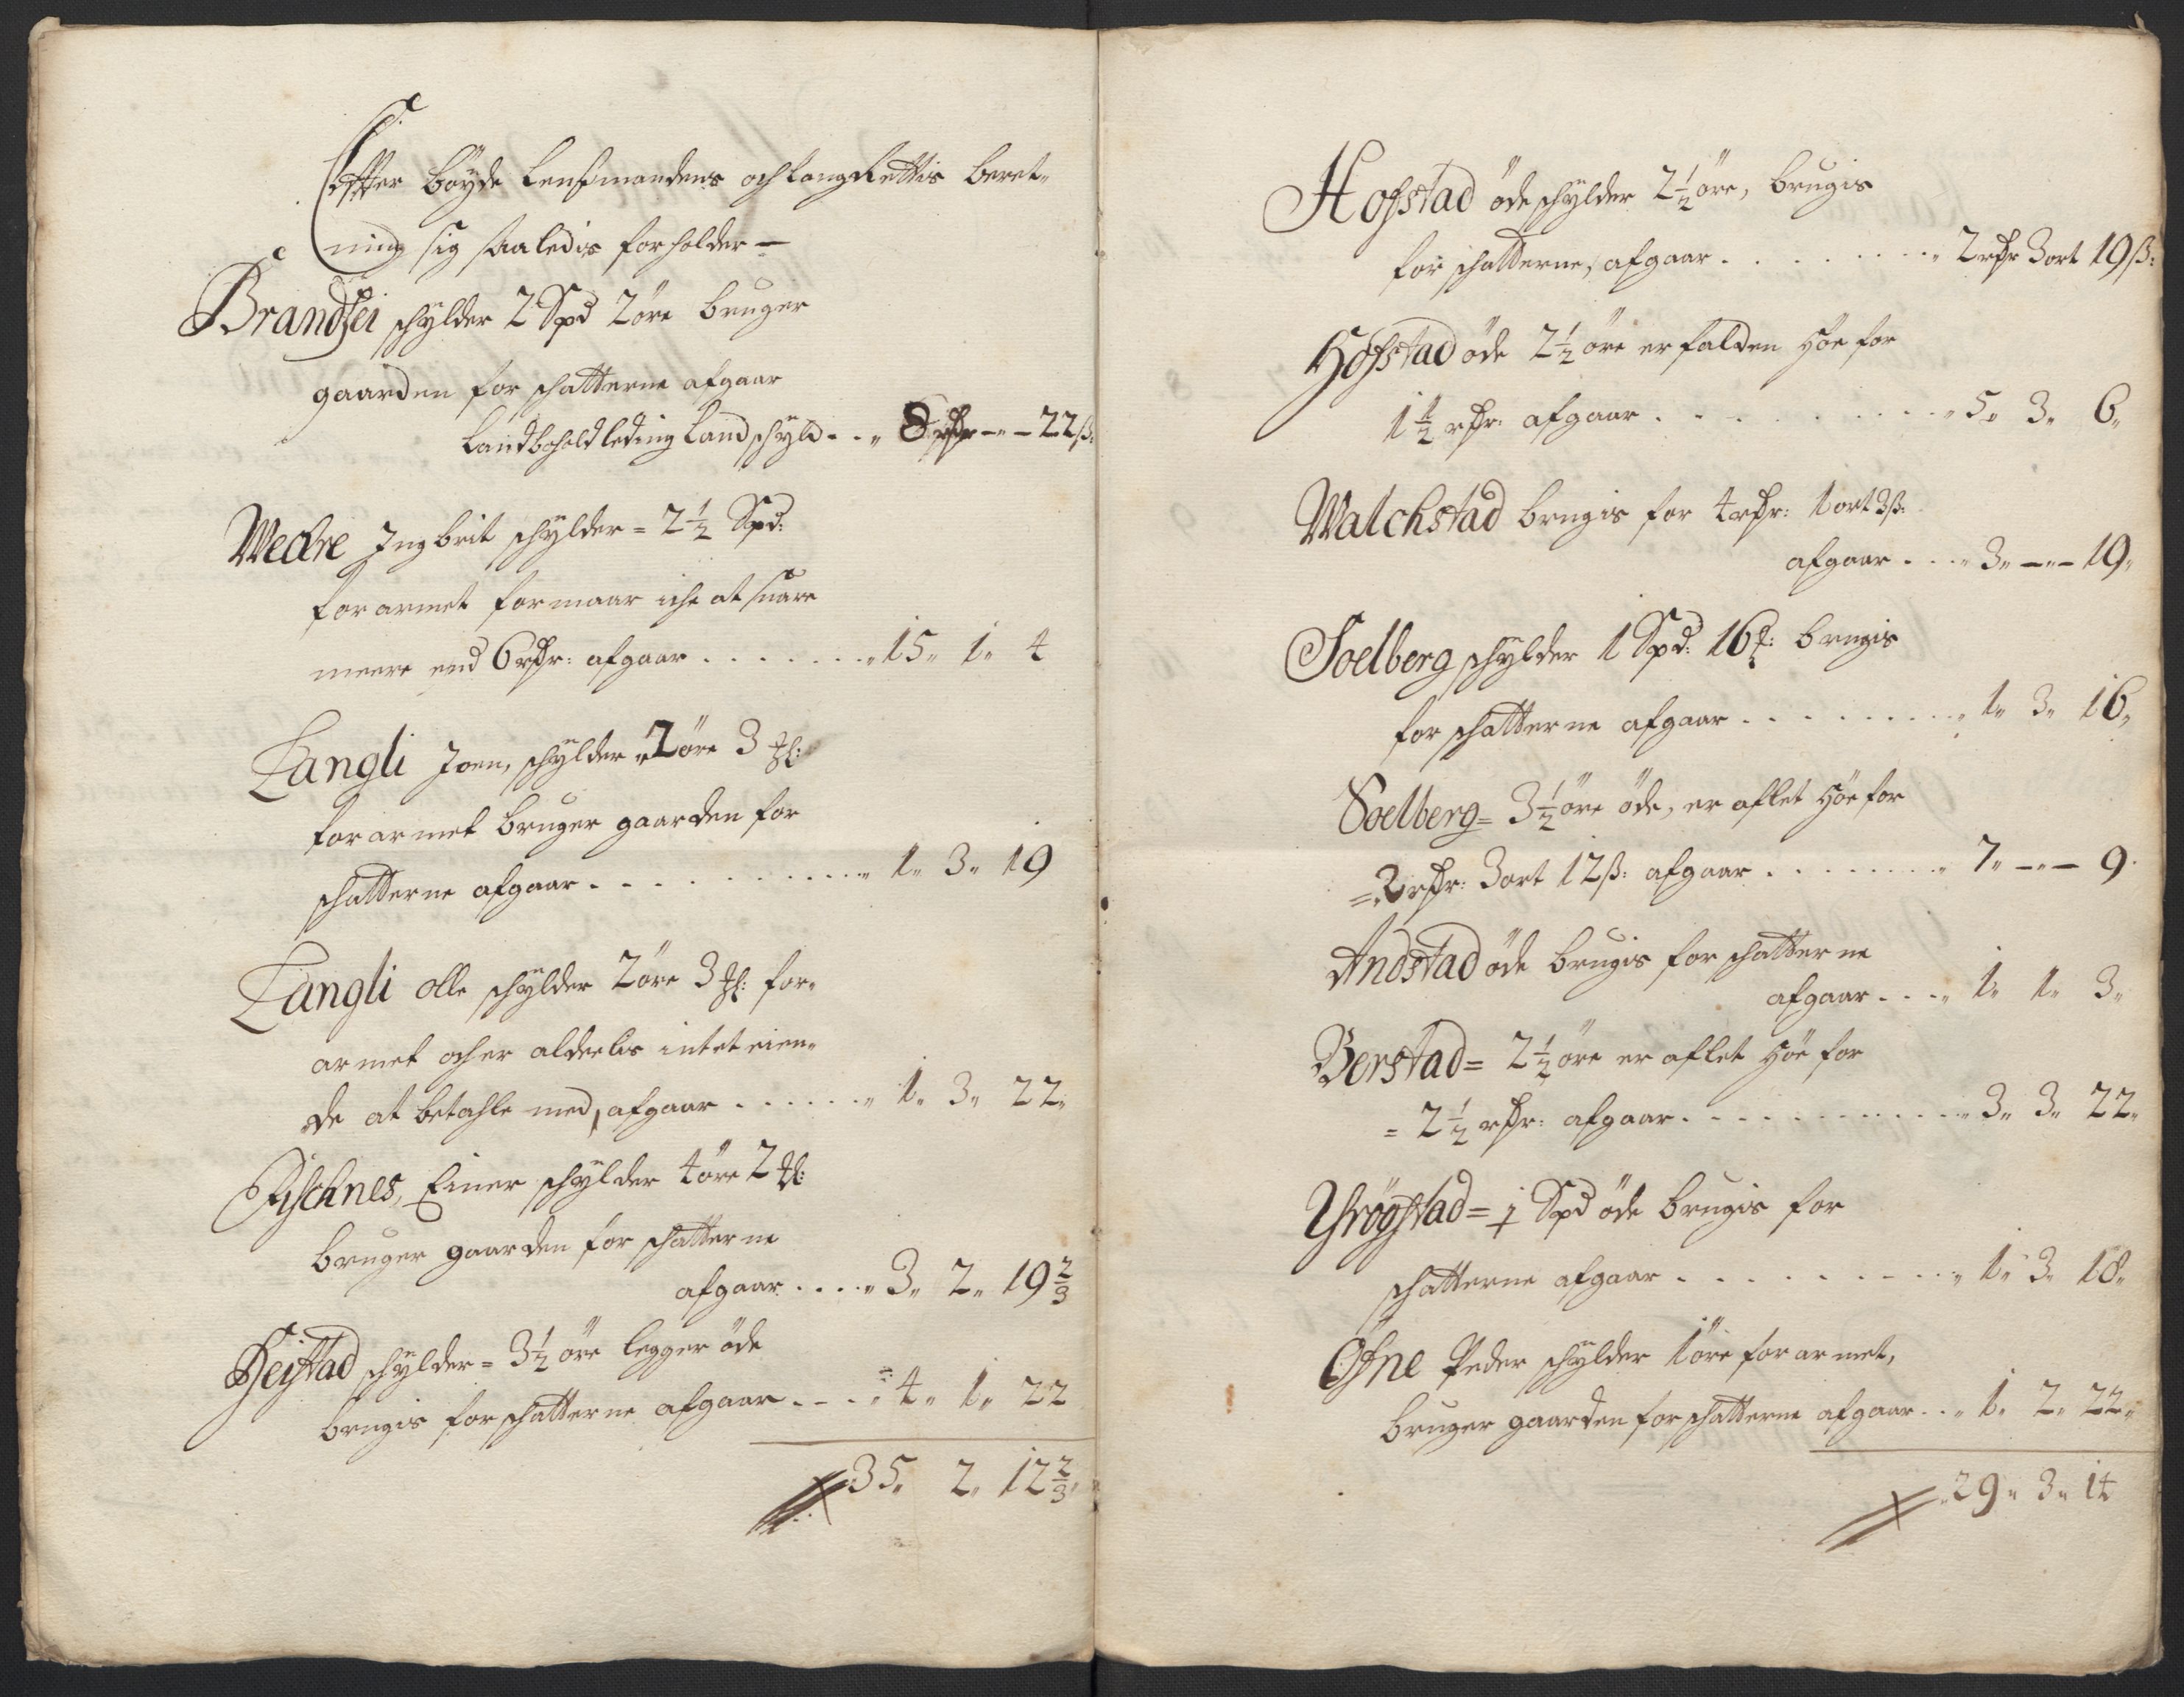 Effter böyde Lensmandens och LaugRettis beret-
ning sig saaledis forholder —
Brandsei schylder 2 Spd 2 öre bruger
gaarden for schatterne afgaar
Landbohold leding Landschyld . . „ 8 rdr – „ – 22 ß:
Wedre Ingbrit schylder = 2 1/2 Spd:
forarmet formaar iche at suare
meere end 6 rdr: afgaar . . . . . . . „ 15„ 1„ 4
Langli Joen, schylder „ 2 öre 3
forarmet bruger gaarden for
schatterne afgaar . . . . . . . . . . . „ 1„ 3„ 19
Langli Olle schylder 2 öre 3 for-
armet och er aldeelis intet eien-
de at betahle med, afgaar . . . . . . „ 1„ 3„ 22„
Fischnes, Einer schylder 4 öre 2
bruger gaarden for schatterne
afgaar . . . . „ 3„ 2„ 19 2/3
Heistad schylder = 3 1/2 öre legger öde
brugis for schatterne afgaar . . . . „ 4„ 1„ 22
35„ 2„ 12 2/3„
Hofstad öde schylder 2 1/2 öre, brugis
for schatterne, afgaar . . . . . . . . . „ 2 rdr 3 ort 19 ß:
Hofstad öde 2 1/2 öre er falden Höe for
1 1/2 rdr: afgaar . . . . . . . . . . . „ 5„ 3„ 6„
Walchstad brugis for 4 rdr: 1 ort 3 ß:
afgaar . . . „ 3„ – „ – 19„
Soelberg schylder 1 Spd: 16 brugis
for schatterne afgaar . . . . . . . . . „ 1„ 3„ 16„
Soelberg = 3 1/2 öre öde, er aflet Höe for
= 2 rdr: 3 ort 12 ß: afgaar . . . . . . . . „ 7„ – „ – 9.
Andstad öde brugis for schatterne
afgaar . . . „ 1„ 1„ 3„
Berstad = 2 1/2 öre er aflet Höe for
= 2 1/2 rdr: afgaar . . . . . . . . . . . „ 3„ 3„ 22„
Thrögstad = 1 Spd öde brugis for
schatterne afgaar . . . . . . . . . . „ 1„ 3„ 18„
Ofne Peder schylder 1 öre forarmet,
bruger gaarden for schatterne afgaar . . „ 1„ 2„ 22„
„ 29„ 3„ 14